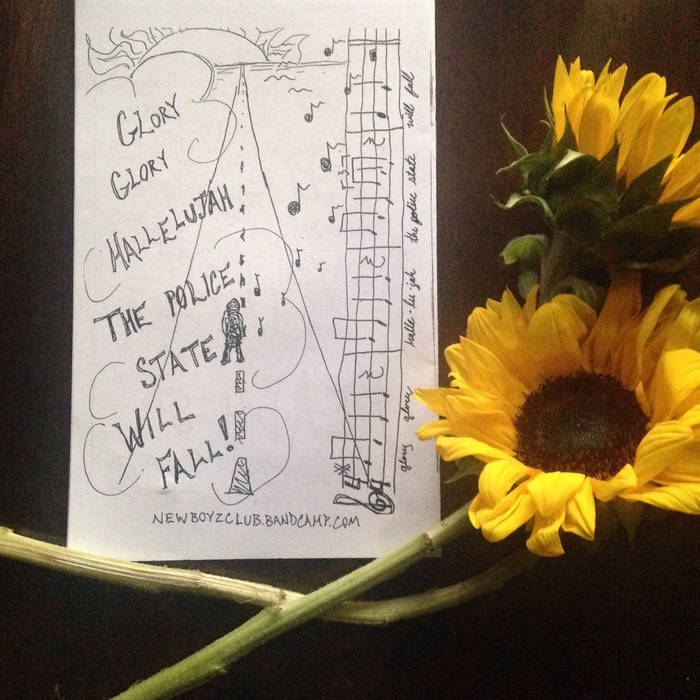 GLORY
GLORY
HALLELUJAH
THE POLICE
STATE
WILL
FALL!
NEWBOYZCLUB.BANDCAMP.COM
glory glory halle-lu-jah the police state will fall